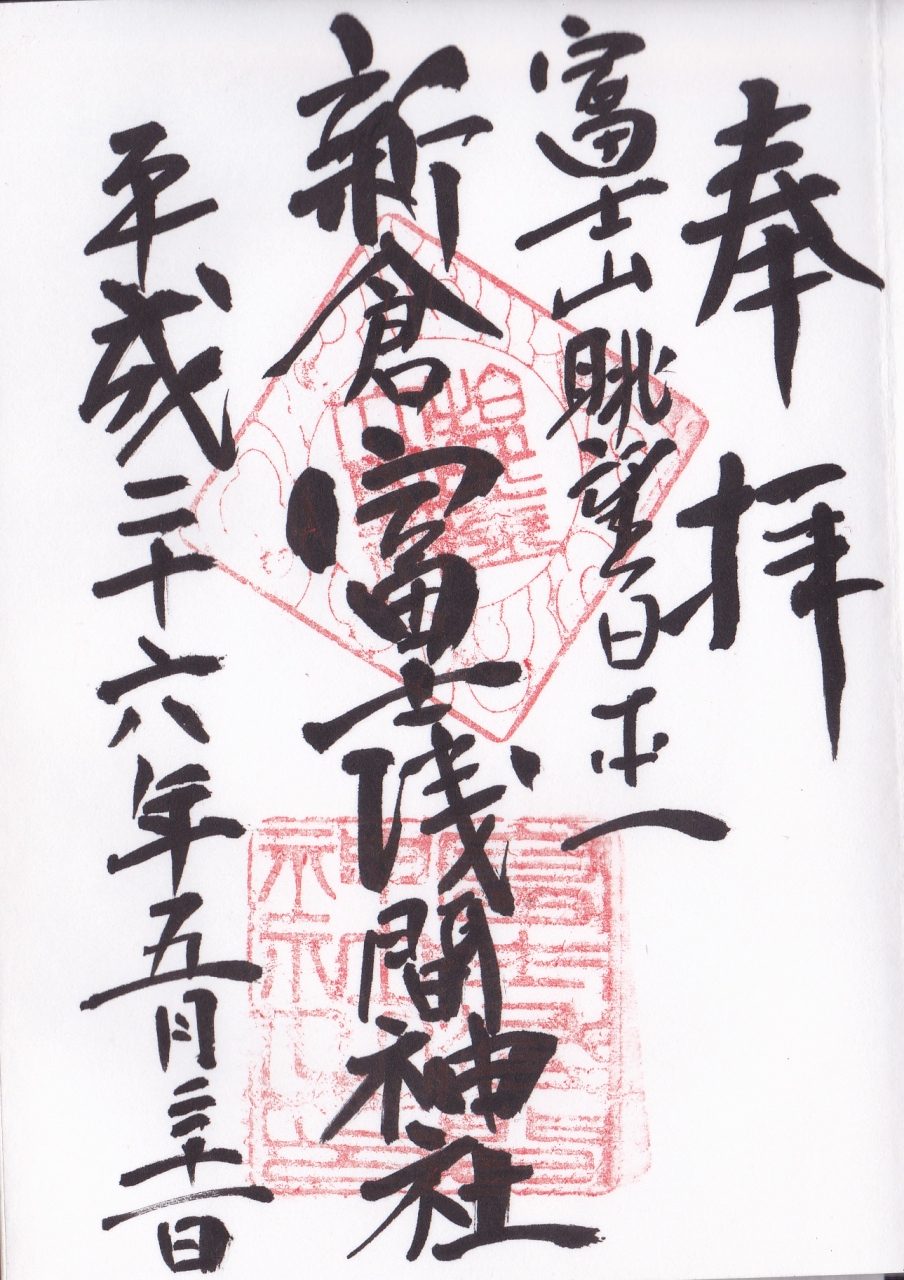 奉拝
富士山眺望日本一
新倉富士浅間神社
平成二十六年五月三十一日